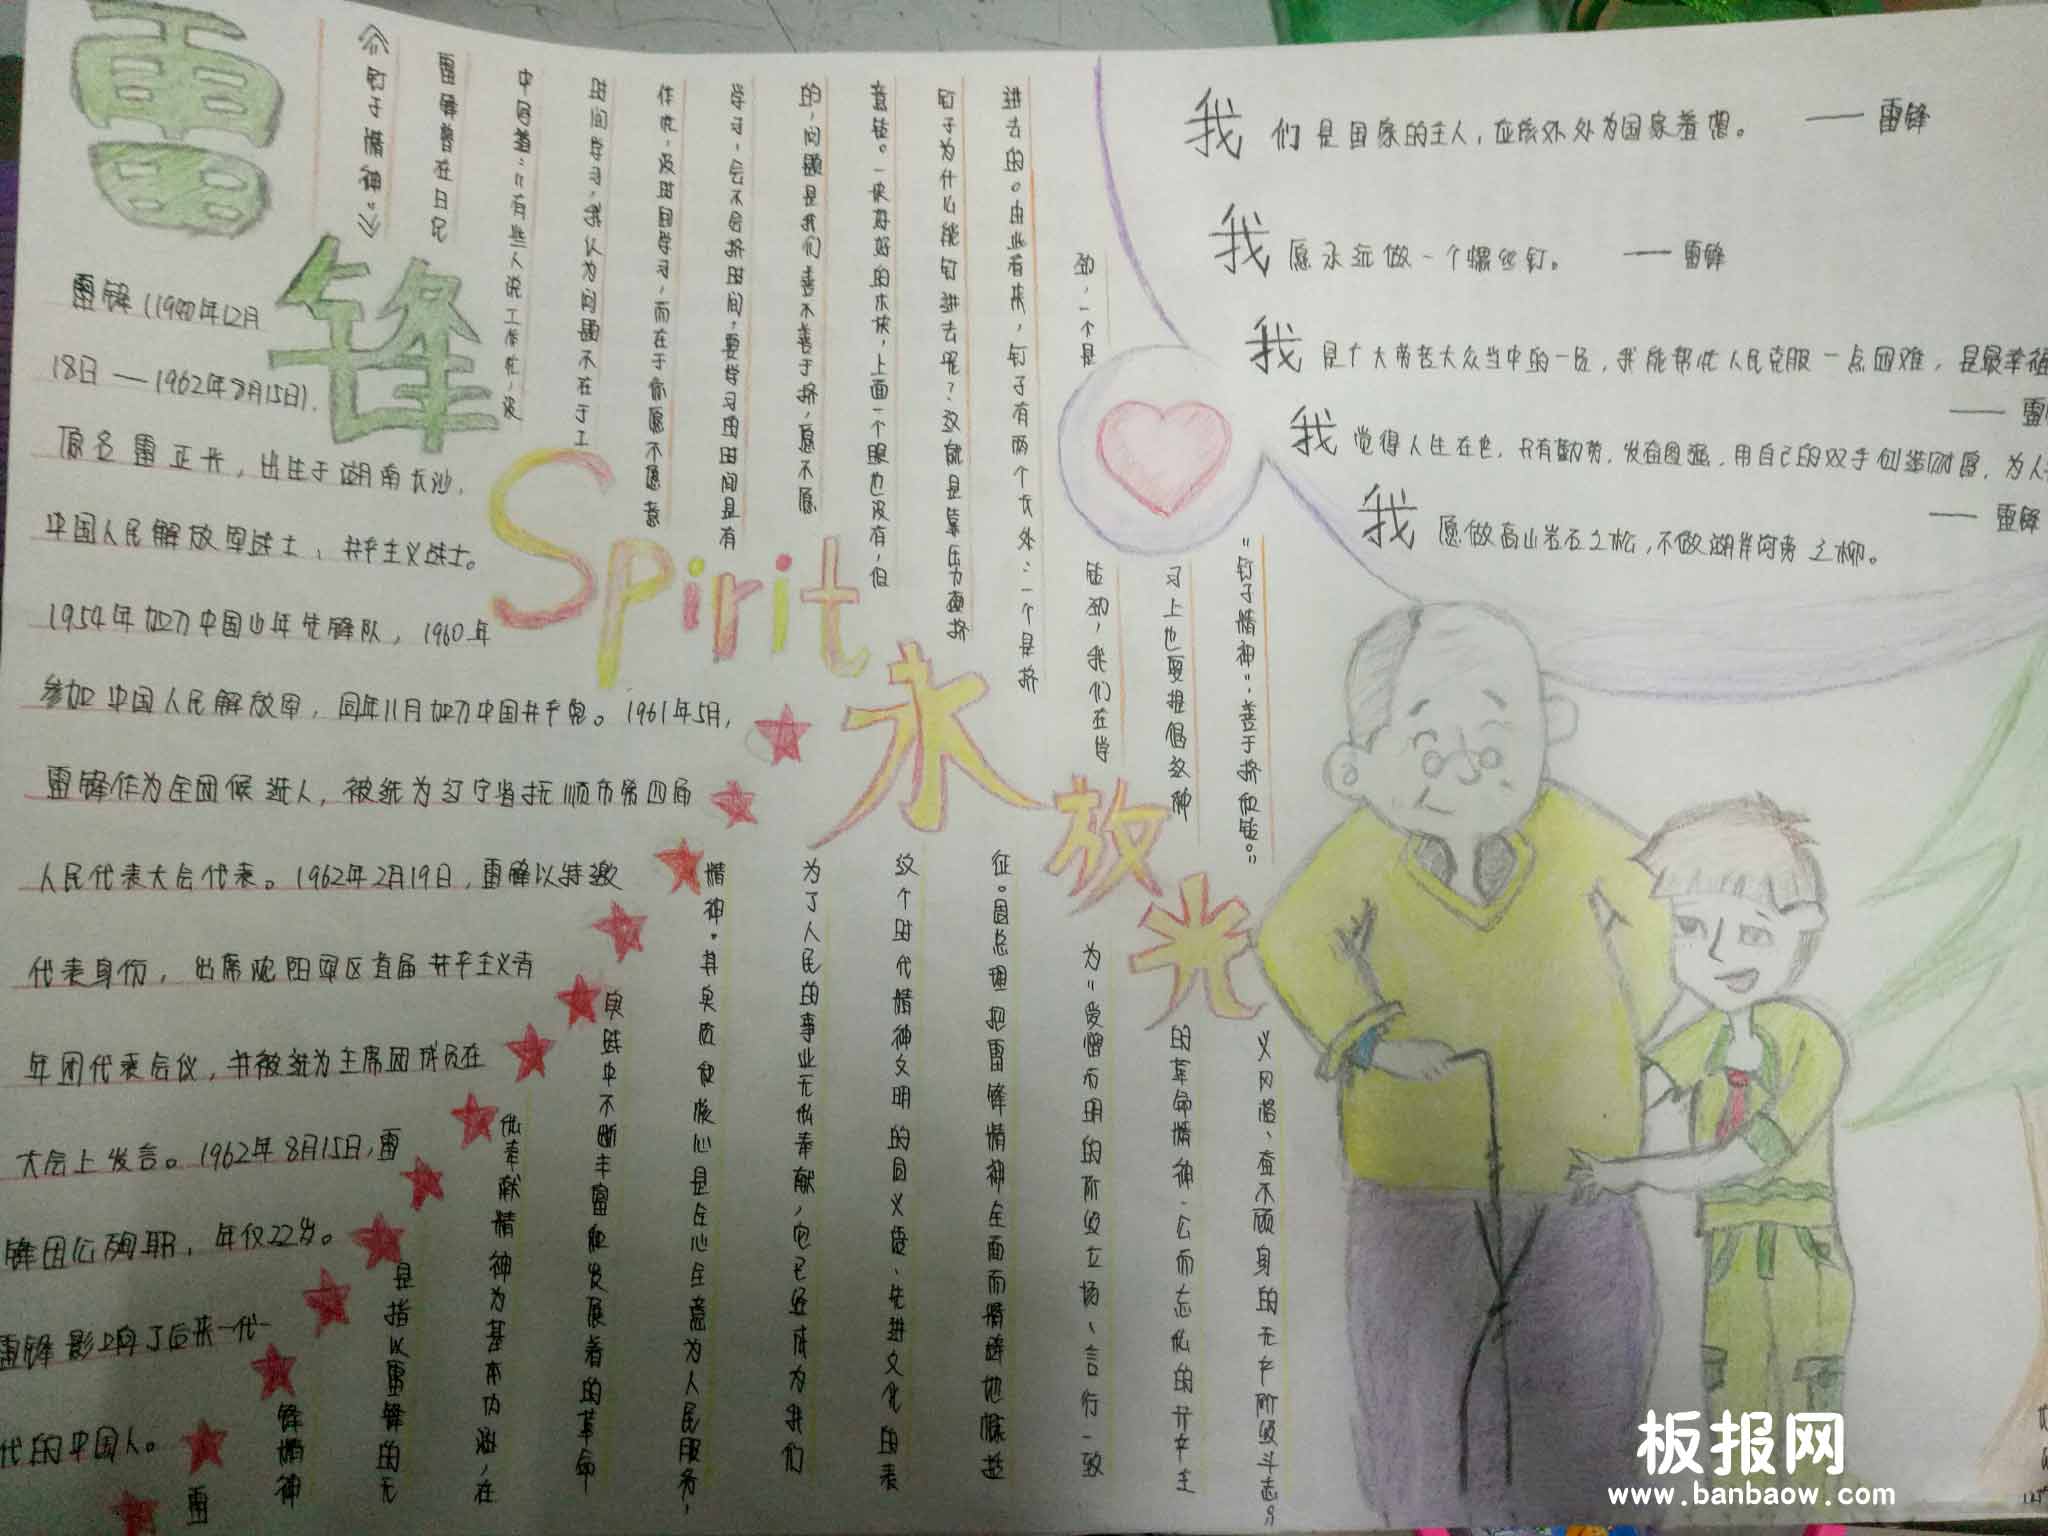 雷
锋
Spirit
永
放
光
雷锋(1940年12月
18日——1962年8月15日),
原名雷正兴,出生于湖南长沙,
中国人民解放军战士、共产主义战士。
1954年加入中国少年先锋队,1960年
参加中国人民解放军,同年11月加入中国共产党。1961年5月,
雷锋作为全团候选人,被选为辽宁省抚顺市第四届
人民代表大会代表。1962年2月19日,雷锋以特邀
代表身份,出席沈阳军区首届共产主义青
年团代表会议,并被选为主席团成员在
大会上发言。1962年8月15日,雷
锋因公殉职,年仅22岁。
雷锋影响了后来一代一
代的中国人。
《“钉子精神”》
雷锋曾在日记
中写着:“有些人说工作忙,没
时间学习,我认为问题不在于工
作忙,没时间学习,而在于你愿不愿意
学习,会不会挤时间,要学习的时间是有
的,问题是我们善不善于挤,愿不愿
意钻。一块好好的木块,上面一个眼也没有,但
钉子为什么能钉进去呢?这就是靠压力硬挤
进去的。由此看来,钉子有两个长处:一个是挤
劲,一个是
钻劲,我们在学
习上也要提倡这种
“钉子精神”,善于挤和钻。”
雷
锋精神
是指以雷锋的无
私奉献精神为基本内涵,在
实践中不断丰富和发展着的革命
精神。其实质和核心是全心全意为人民服务,
为了人民的事业无私奉献,它已经成为我们
这个时代精神文明的同义语、先进文化的表
征。周总理把雷锋精神全面而精辟地概括
为“爱憎分明的阶级立场、言行一致
的革命精神、公而忘私的共产主
义风格、奋不顾身的无产阶级斗志。”
我们是国家的主人,应该处处为国家着想。 ——雷锋
我愿永远做一个螺丝钉。 ——雷锋
我是广大劳苦大众当中的一员,我能帮忙人民克服一点困难,是最幸福
——雷
我觉得人生在世,只有勤劳,发奋图强,用自己的双手创造财富,为人
——雷锋
我愿做高山岩石之松,不做湖岸河旁之柳。
板报网
www.banbaow.com